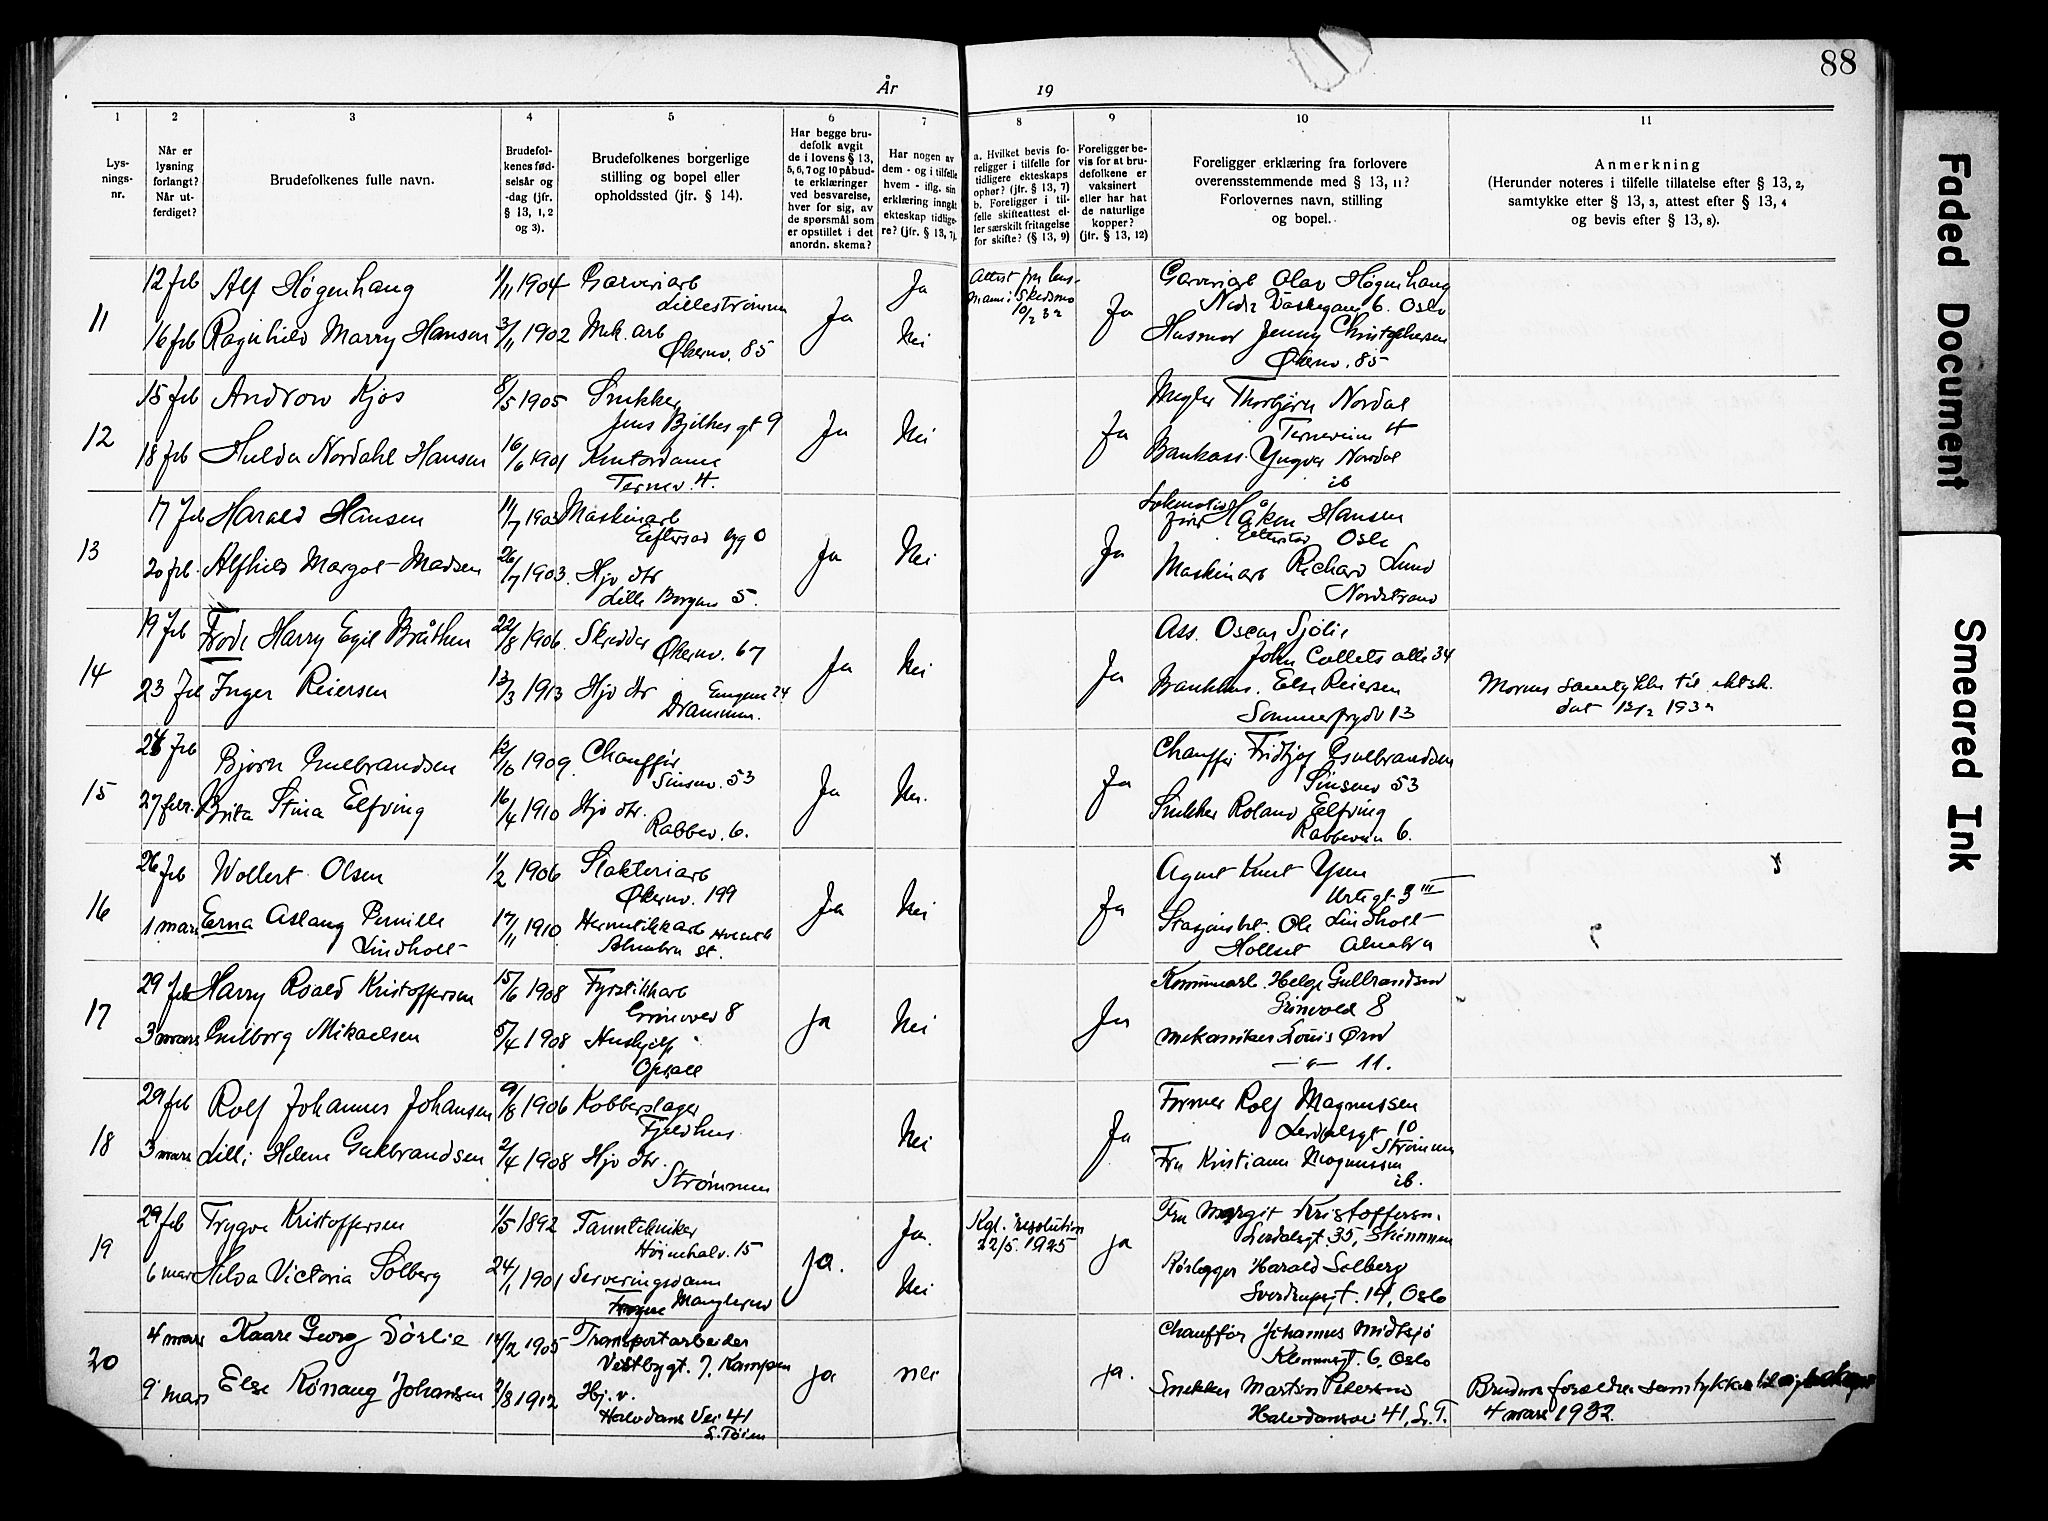 88
År 19
1 2 3 4 5 6 7 8 9 10 11
Lys-
nings-
nr.
Når er
lysning
forlangt?
Når ut-
ferdiget?
Brudefolkenes fulle navn.
Brudefol-
kenes fød-
selsår og
-dag (jfr.
§ 13, 1, 2
og 3).
Brudefolkenes borgerlige
stilling og bopel eller
opholdssted (jfr. § 14).
Har begge bru-
defolk avgit
de i lovens § 13,
5, 6, 7 og 10 påbud-
te erklæringer
ved besvarelse,
hver for sig, av
de spørsmål som
er opstillet i det
anordn. skema?
Har nogen av
dem - og i tilfelle
hvem - iflg. sin
erklæring inngått
ekteskap tidlige-
re? (jfr. § 13, 7).
a. Hvilket bevis fo-
religger i tilfelle for
tidligere ekteskaps
ophør? (jfr. § 13, 7)
b. Foreligger i til-
felle skifteattest el-
ler særskilt fritagelse
for skifte? (§ 13, 9)
Foreligger be-
vis for at bru-
defolkene er
vaksinert
eller har hat
de naturlige
kopper?
(jfr. § 13, 12)
Foreligger erklæring fra forlovere
overensstemmende med § 13, 11?
Forlovernes navn, stilling
og bopel.
Anmerkning
(Herunder noteres i tilfelle tillatelse efter § 13, 2,
samtykke efter § 13, 3, attest efter § 13, 4
og bevis efter § 13, 8).
11
12 feb Alf Høgenhaug 1/11 1904 Garveriarb Ja Garveriarb Olav Høgenhaug
Lillestrømmen Ja 10/2 32 Ja 6. Oslo
16 feb Ragnhild Marry Hansen 3/11 1902 Mek. arb Nei Husmor Jenny Christophersen
Økernv. 85 Økernv. 85
12
15 feb Androw Kjos 8/5 1905 Snekker Thorbjørn Nordal
Jens Bjelkes gt 9 Ja Nei Ja Terneveien 4
18 feb Hulda Nordahl Hansen 16/6 1901 Kontordame Bankass. Yngvar Nordal
Ternev. 4. ib
13
17 feb Harald Hansen 11/7 1903 Maskinarb Håkon Hansen
Ja Nei Ja Oslo
20 feb. Alfhild Margot Madsen 26/7 1903. Hjv dtr Maskinarb Richard Lund
Lille Borgens 5. Nordstrand
14
19 feb Frode Harry Egil Bråthen 22/8 1906. Skredder Ass. Oscar Sjølie
Økernv. 67 Ja Nei Ja John Collets allé 34
23 feb Inger Reiersen 13/3 1913 Hjv dtr Else Reiersen Morens samtykke til ektsk.
Drammen. Sommerfrydv 13 dat 12/2 1932
15
24 feb Bjørn Gulbrandsen 12/10 1909. Chauffør Chauffør Fridtjof Gulbrandsen
Sinsenv. 53 Ja Nei. Ja Sinsenv 53
27 febr. Brita Stina Elfving 16/4 1910 Hjv dtr. Snekker Roland Elfving
Rabbev. 6. Rabbeveien 6.
16
26 feb Wollert Olsen 1/2 1906 Slakteriarb Agent Knut Ysen
Økernv. 199 Ja Nei Ja Urtegt 3 III
1 mars Erna Aslaug Pernille 17/11 1910 Hermetikkarb Ole Lindholt
Lindholt Alnabru st. Alnabru
17
29 feb Harry Roald Kristoffersen 15/6 1908 Fyrstikkarb Kommunearb. Helge Gulbrandsen
8 Ja Nei Ja 8
3 mars Gulborg Mikaelsen 5/4 1908 Hushjelp Mekaniker Louis Ørn
Opsal —"— 11.
18
29 feb Rolf Johannes Johansen 9/8 1906 Kobberslager Former Rolf Magnussen
Fjeldhus. Nei Ja Lerdalsgt 10
3 mars Lilli Helene Gulbrandsen 2/4 1908 Hjv dtr. Fru Kristiane Magnussen Strømmen
Strømmen ib.
19
29 feb Trygve Kristoffersen 1/5 1892 Tanntekniker Ja. Kgl. resolution Fru Margit Kristoffersen.
Høienhalv. 15 Ja. 22/5. 1925 ja Lerdalsgt. 35,
6 mars Hilda Victoria Solberg 24/1 1901 Serveringsdame Nei Rørlegger Harald Solberg
Manglerud Sverdrupsgt. 14, Oslo
20
4 mars Kaare Georg Sörlie 14/2 1905 Transportarbeider Chauffør Johannes Midtsjø
Vestbygt. 7, Kampen ja nei ja. Klemmsgt. 6. Oslo
9 mars Else Rönaug Johansen 2/8 1912 Hj. v. Snekker Martin Petersen Brudens foreldre samtykke til
Halvdans Vei 41 Halvdansvei 41, L. T. 4 mars 1932.
L. Töien
Faded Document
Smeared Ink